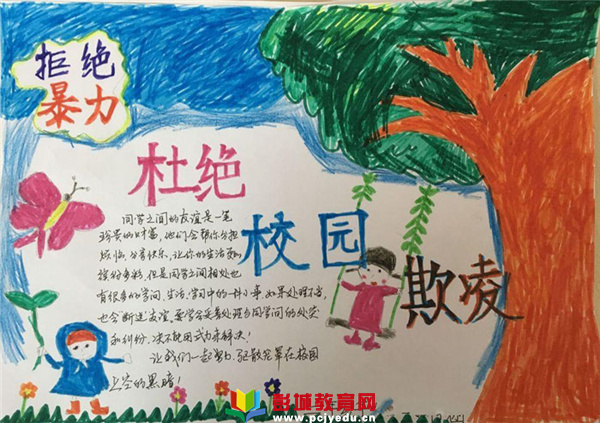 拒绝
暴力
杜绝
校园
欺凌
同学之间的友谊是一笔
珍贵的财富,他们会帮你分担
烦恼,分享快乐,让你的生活更加
缤纷多彩,但是同学之间相处也
有很多的学问。生活、学习中的一件小事,如果处理不当,
也会断送友谊,要学会妥善处理与同学间的处突
和纠纷,决不能用武力来解决!
让我们一起努力,驱散笼罩在校园
上空的黑暗!
彭城教育网
www.pcjyedu.cn